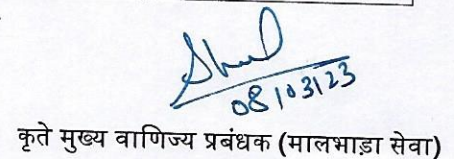 08/03/23
कृते मुख्य वाणिज्य प्रबंधक (मालभाड़ा सेवा)